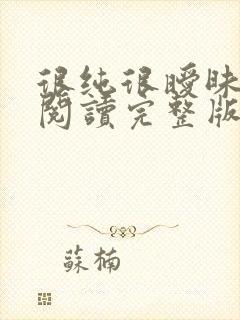 很純很曖昧
閱讀完整版
蘇楠